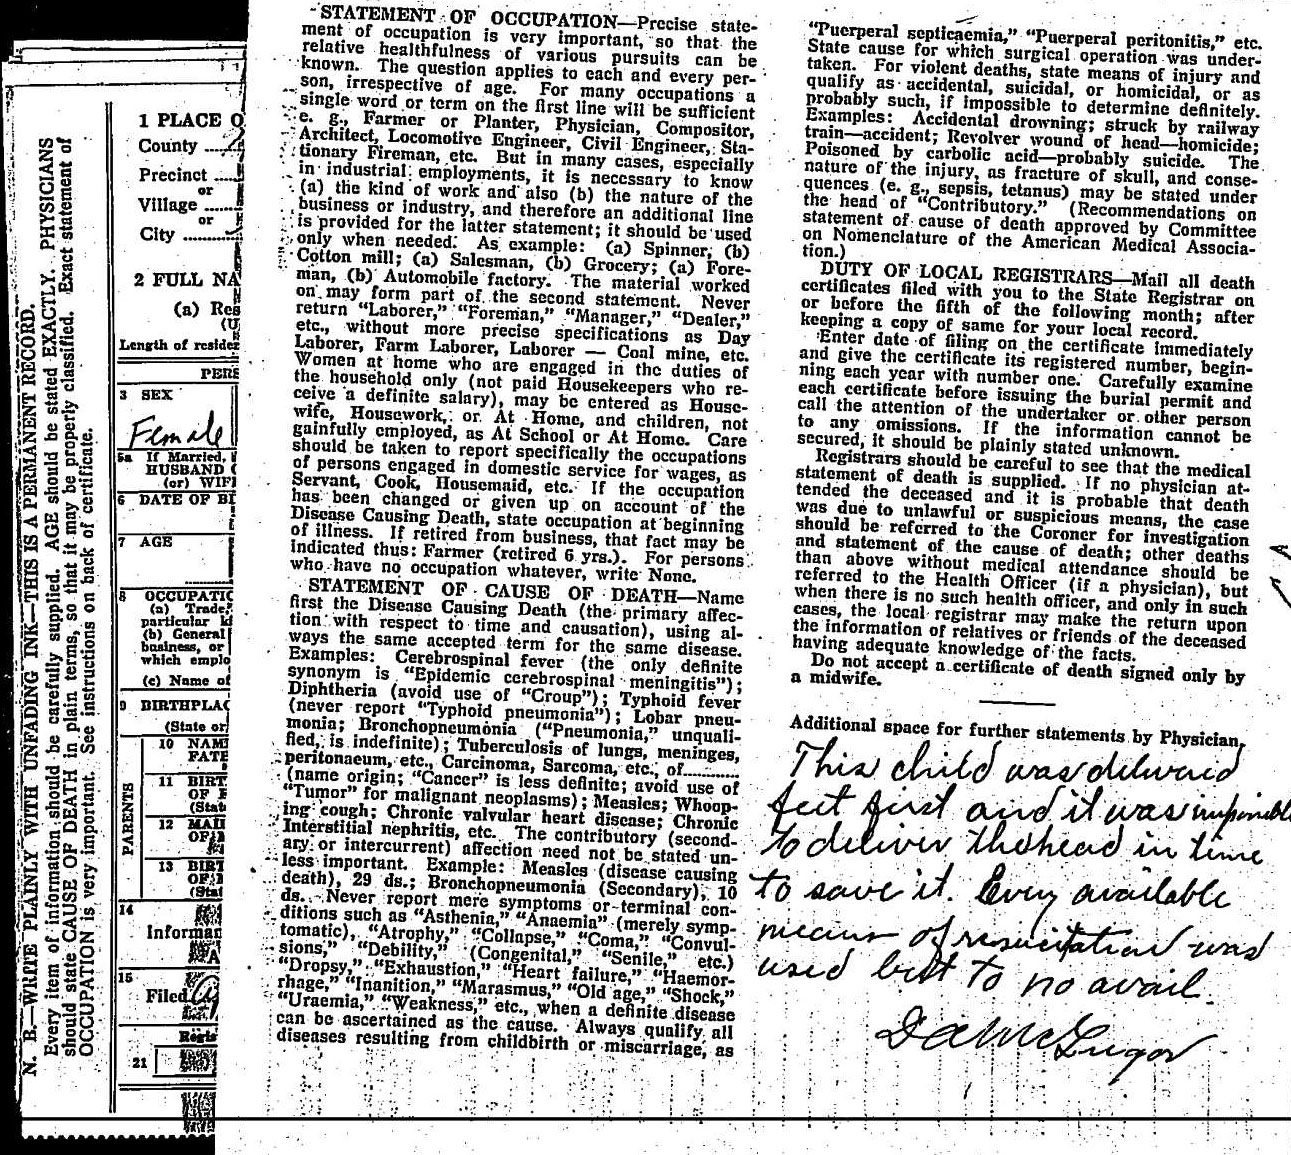 N. B.—WRITE PLAINLY WITH UNFADING INK—THIS IS A PERMANENT RECORD.
Every item of information should be carefully supplied. AGE should be stated EXACTLY. PHYSICIANS
should state CAUSE OF DEATH in plain terms, so that it may be properly classified. Exact statement of
OCCUPATION is very important. See instructions on back of certificate.
1 PLACE O
County
Precinct
or
Village
or
City
2 FULL NA
(a) Res
(U
Length of reside
PERS
3 SEX
Female
5a If Married,
HUSBAND
(or) WIF
6 DATE OF BI
7 AGE
8 OCCUPATIO
(a) Trade,
particular ki
(b) General
business, or
which emplo
(c) Name of
9 BIRTHPLAC
(State or
PARENTS
10 NAM
FATE
11 BIRT
OF F
(Stat
12 MAI
OF
13 BIRT
OF
(Stat
14
Informan
15
Filed
Regis
21
STATEMENT OF OCCUPATION—Precise state-
ment of occupation is very important, so that the
relative healthfulness of various pursuits can be
known. The question applies to each and every per-
son, irrespective of age. For many occupations a
single word or term on the first line will be sufficient
e. g., Farmer or Planter, Physician, Compositor,
Architect, Locomotive Engineer, Civil Engineer, Sta-
tionary Fireman, etc. But in many cases, especially
in industrial employments, it is necessary to know
(a) the kind of work and also (b) the nature of the
business or industry, and therefore an additional line
is provided for the latter statement; it should be used
only when needed. As example: (a) Spinner, (b)
Cotton mill; (a) Salesman, (b) Grocery; (a) Fore-
man, (b) Automobile factory. The material worked
on may form part of the second statement. Never
return "Laborer," "Foreman," "Manager," "Dealer,"
etc., without more precise specifications as Day
Laborer, Farm Laborer, Laborer — Coal mine, etc.
Women at home who are engaged in the duties of
the household only (not paid Housekeepers who re-
ceive a definite salary), may be entered as House-
wife, Housework, or At Home, and children, not
gainfully employed, as At School or At Home. Care
should be taken to report specifically the occupations
of persons engaged in domestic service for wages, as
Servant, Cook, Housemaid, etc. If the occupation
has been changed or given up on account of the
Disease Causing Death, state occupation at beginning
of illness. If retired from business, that fact may be
indicated thus: Farmer (retired 6 yrs.). For persons
who have no occupation whatever, write None.
STATEMENT OF CAUSE OF DEATH—Name
first the Disease Causing Death (the primary affec-
tion with respect to time and causation), using al-
ways the same accepted term for the same disease.
Examples: Cerebrospinal fever (the only definite
synonym is "Epidemic cerebrospinal meningitis");
Diphtheria (avoid use of "Croup"); Typhoid fever
(never report "Typhoid pneumonia"); Lobar pneu-
monia; Bronchopneumonia ("Pneumonia," unquali-
fied, is indefinite); Tuberculosis of lungs, meninges,
peritonaeum, etc., Carcinoma, Sarcoma, etc., of...........
(name origin; "Cancer" is less definite; avoid use of
"Tumor" for malignant neoplasms); Measles; Whoop-
ing cough; Chronic valvular heart disease; Chronic
Interstitial nephritis, etc. The contributory (second-
ary or intercurrent) affection need not be stated un-
less important. Example: Measles (disease causing
death), 29 ds.; Bronchopneumonia (Secondary), 10
ds. Never report mere symptoms or terminal con-
ditions such as "Asthenia," "Anaemia" (merely symp-
tomatic), "Atrophy," "Collapse," "Coma," "Convul-
sions," "Debility," (Congenital," "Senile," etc.)
"Dropsy," "Exhaustion," "Heart failure," "Haemor-
rhage," "Inanition," "Marasmus," "Old age," "Shock,"
"Uraemia," "Weakness," etc., when a definite disease
can be ascertained as the cause. Always qualify all
diseases resulting from childbirth or miscarriage, as
"Puerperal septicaemia," "Puerperal peritonitis," etc.
State cause for which surgical operation was under-
taken. For violent deaths, state means of injury and
qualify as accidental, suicidal, or homicidal, or as
probably such, if impossible to determine definitely.
Examples: Accidental drowning; struck by railway
train—accident; Revolver wound of head—homicide;
Poisoned by carbolic acid—probably suicide. The
nature of the injury, as fracture of skull, and conse-
quences (e. g., sepsis, tetanus) may be stated under
the head of "Contributory." (Recommendations on
statement of cause of death approved by Committee
on Nomenclature of the American Medical Associa-
tion.)
DUTY OF LOCAL REGISTRARS—Mail all death
certificates filed with you to the State Registrar on
or before the fifth of the following month; after
keeping a copy of same for your local record.
Enter date of filing on the certificate immediately
and give the certificate its registered number, begin-
ning each year with number one. Carefully examine
each certificate before issuing the burial permit and
call the attention of the undertaker or other person
to any omissions. If the information cannot be
secured, it should be plainly stated unknown.
Registrars should be careful to see that the medical
statement of death is supplied. If no physician at-
tended the deceased and it is probable that death
was due to unlawful or suspicious means, the case
should be referred to the Coroner for investigation
and statement of the cause of death; other deaths
than above without medical attendance should be
referred to the Health Officer (if a physician), but
when there is no such health officer, and only in such
cases, the local registrar may make the return upon
the information of relatives or friends of the deceased
having adequate knowledge of the facts.
Do not accept a certificate of death signed only by
a midwife.
Additional space for further statements by Physician.
This child was delivered
feet first and it was impossible
to deliver the head in time
to save it. Every available
means of resuscitation was
used but to no avail.